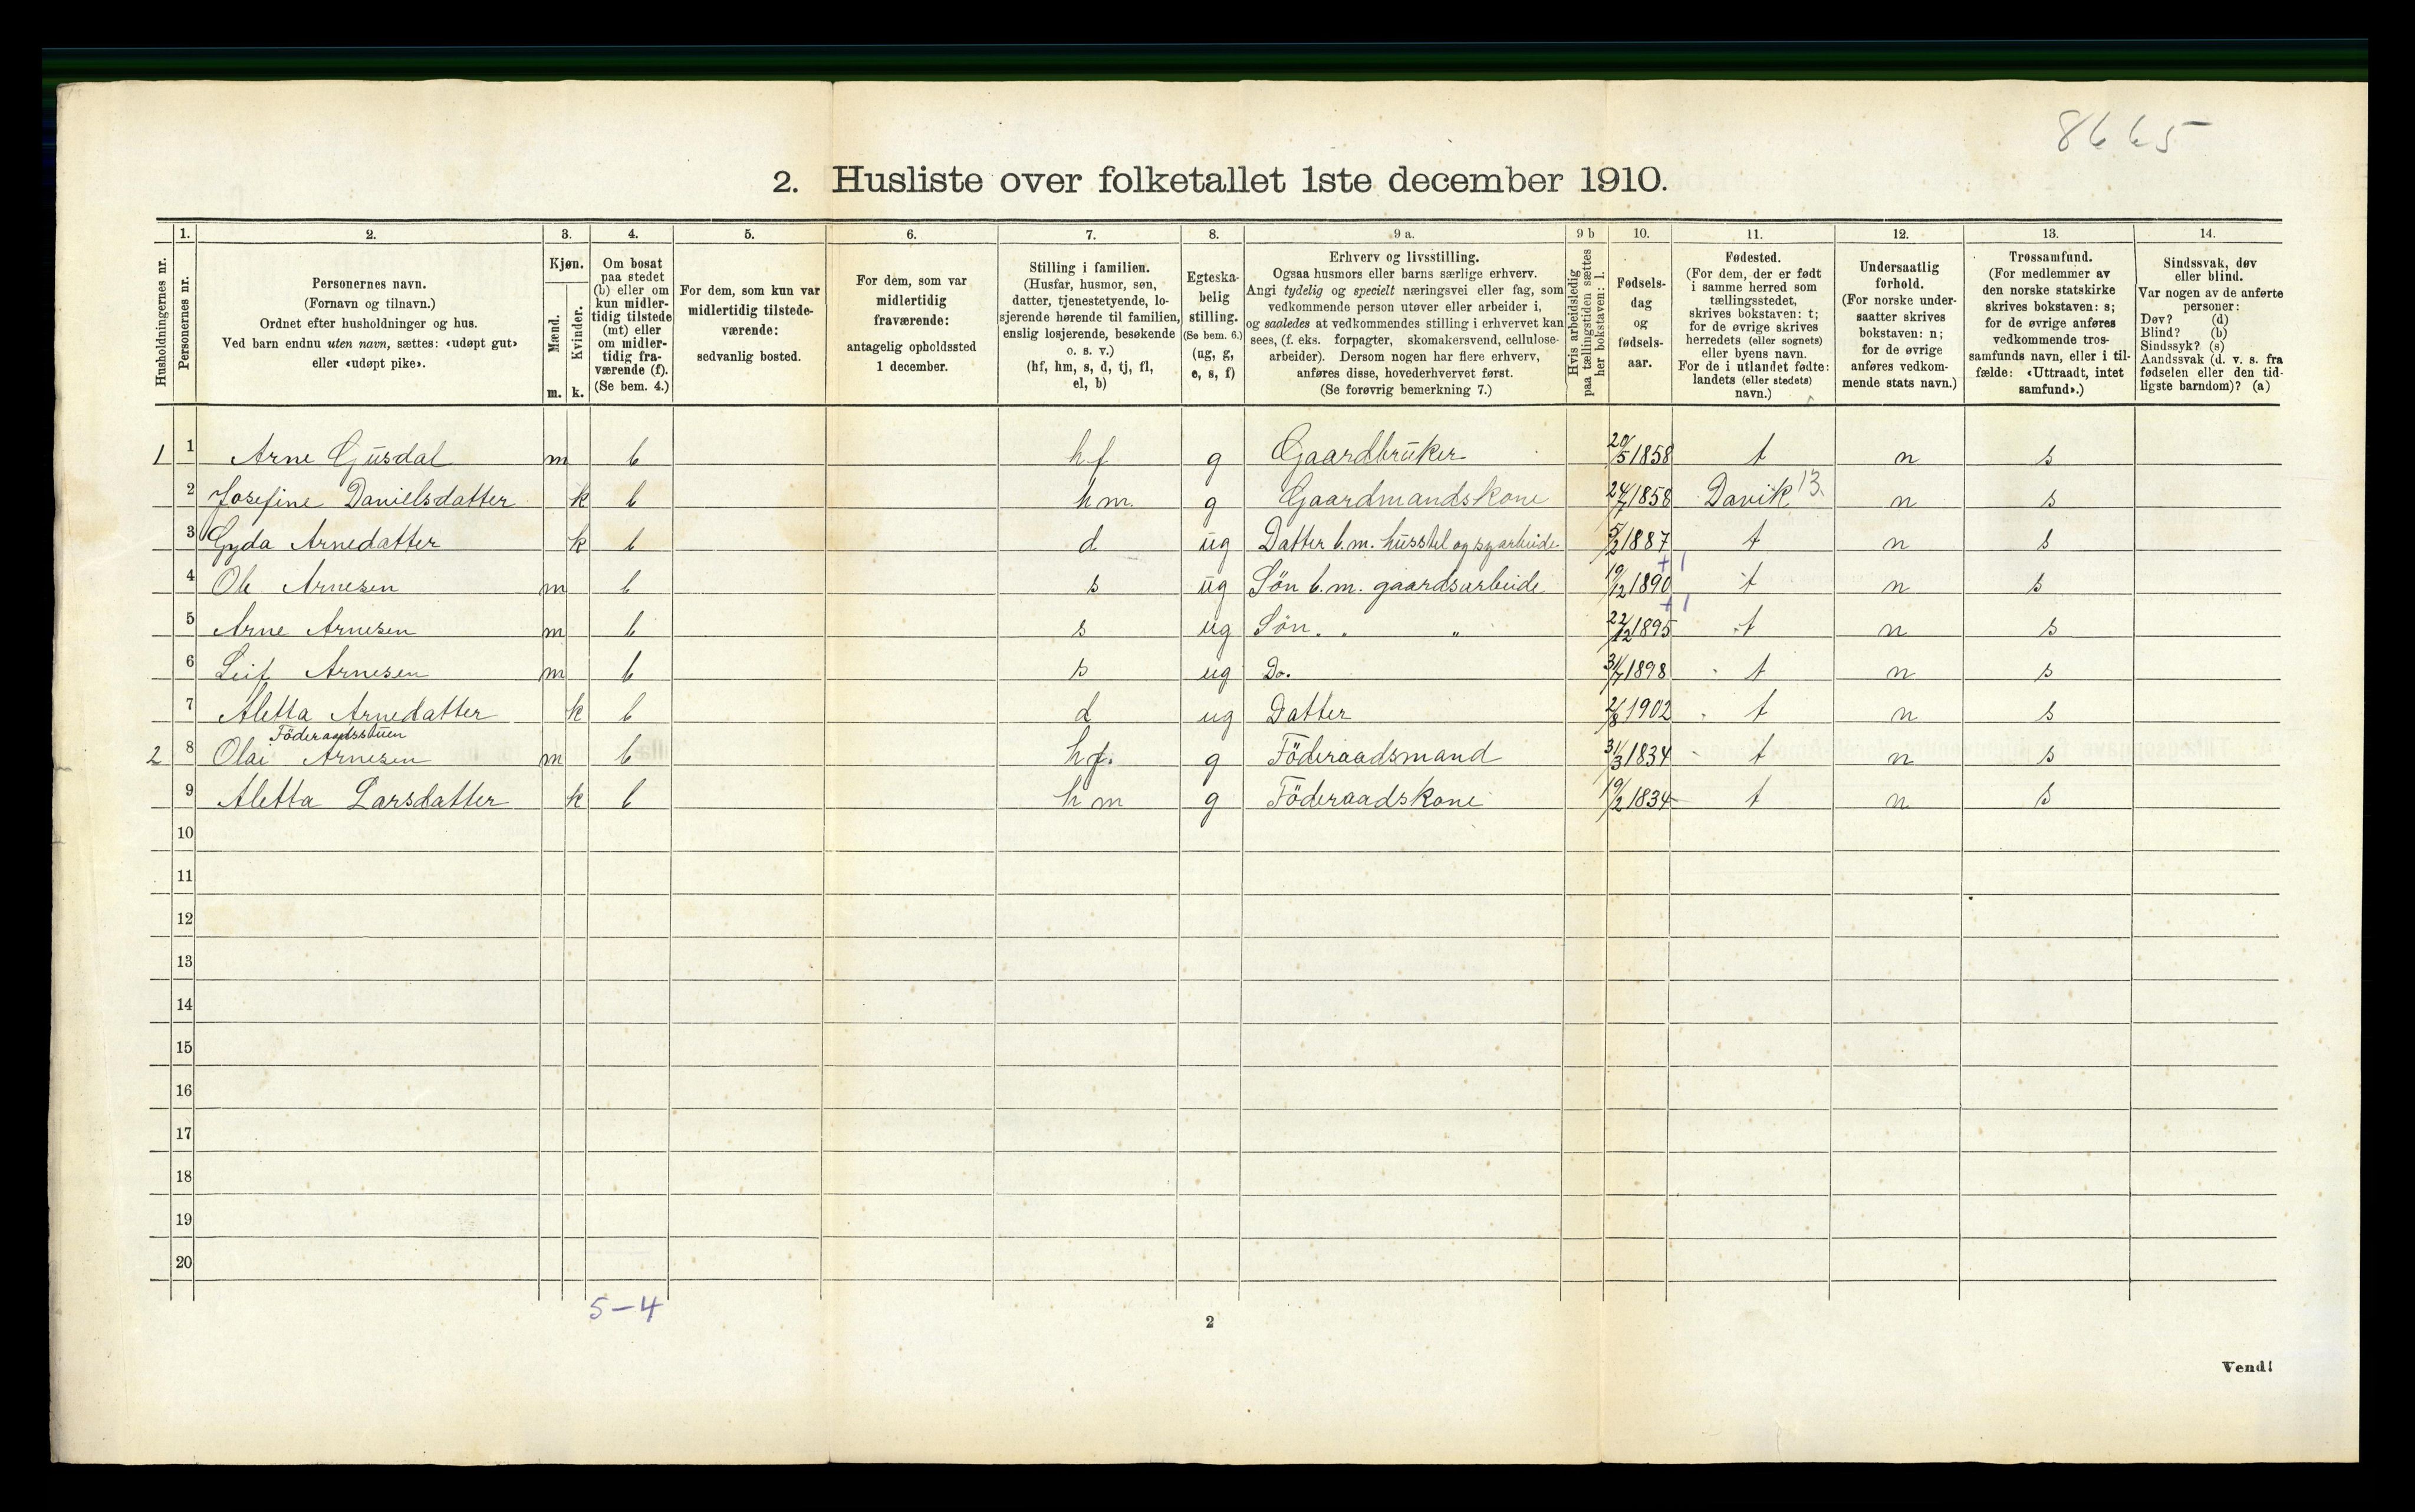 8665
2. Husliste over folketallet 1ste december 1910.
Husholdningernes nr.
1.
Personernes nr.
2.
Personernes navn.
(Fornavn og tilnavn.)
Ordnet efter husholdninger og hus.
Ved barn endnu uten navn, sættes: «udøpt gut»
eller «udøpt pike».
3.
Kjøn.
Mænd.
Kvinder.
m. k.
4.
Om bosat
paa stedet
(b) eller om
kun midler-
tidig tilstede
(mt) eller
om midler-
tidig fra-
værende (f).
(Se bem. 4.)
5.
For dem, som kun var
midlertidig tilstede-
værende:
sedvanlig bosted.
6.
For dem, som var
midlertidig
fraværende:
antagelig opholdssted
1 december.
7.
Stilling i familien.
(Husfar, husmor, søn,
datter, tjenestetyende, lo-
sjerende hørende til familien,
enslig losjerende, besøkende
o. s. v.)
(hf, hm, s, d, tj, fl,
el, b)
8.
Egteska-
belig
stilling.
(Se bem. 6.)
(ug, g,
e, s, f)
9 a.
Erhverv og livsstilling.
Ogsaa husmors eller barns særlige erhverv.
Angi tydelig og specielt næringsvei eller fag, som
vedkommende person utøver eller arbeider i,
og saaledes at vedkommendes stilling i erhvervet kan
sees, (f. eks. forpagter, skomakersvend, cellulose-
arbeider). Dersom nogen har flere erhverv,
anføres disse, hovederhvervet først.
(Se forøvrig bemerkning 7.)
9 b
Hvis arbeidsledig
paa tællingstiden sættes
her bokstaven: l.
10.
Fødsels-
dag
og
fødsels-
aar.
11.
Fødested.
(For dem, der er født
i samme herred som
tællingsstedet,
skrives bokstaven: t;
for de øvrige skrives
herredets (eller sognets)
eller byens navn.
For de i utlandet fødte:
landets (eller stedets)
navn.)
12.
Undersaatlig
forhold.
(For norske under-
saatter skrives
bokstaven: n;
for de øvrige
anføres vedkom-
mende stats navn.)
13.
Trossamfund.
(For medlemmer av
den norske statskirke
skrives bokstaven: s;
for de øvrige anføres
vedkommende tros-
samfunds navn, eller i til-
fælde: «Uttraadt, intet
samfund».)
14.
Sindssvak, døv
eller blind.
Var nogen av de anførte
personer:
Døv? (d)
Blind? (b)
Sindssyk? (s)
Aandssvak (d. v. s. fra
fødselen eller den tid-
ligste barndom)? (a)
1 1 Arne Gusdal m b hf g Gaardbruker 20/5 1858 t n s
2 Josefine Danielsdatter k b hm. g Gaardmandskone 24/7 1858 Davik 13. n s
3 Gyda Arnedatter k b d ug Datter b.m. husstel og syarbeide 5/2 1887 t n s
4 Ole Arnesen m b s ug Søn b.m. gaardsarbeide 19/12 1890 +1 t n s
5 Arne Arnesen m b s ug Søn. . " 22/12 1895 +1 t n s
6 Leif Arnesen m b s ug Do. 31/7 1898 t n s
7 Aletta Arnedatter k b d ug Datter 2/8 1902 t n s
Föderaadsstuen
2 8 Olai Arnesen m b hf. g Föderaadsmand 31/3 1834 t n s
9 Aletta Larsdatter k b hm g Föderaadskone 19/2 1834 t n s
10
11
12
13
14
15
16
17
18
19
20
5-4
2
Vend!